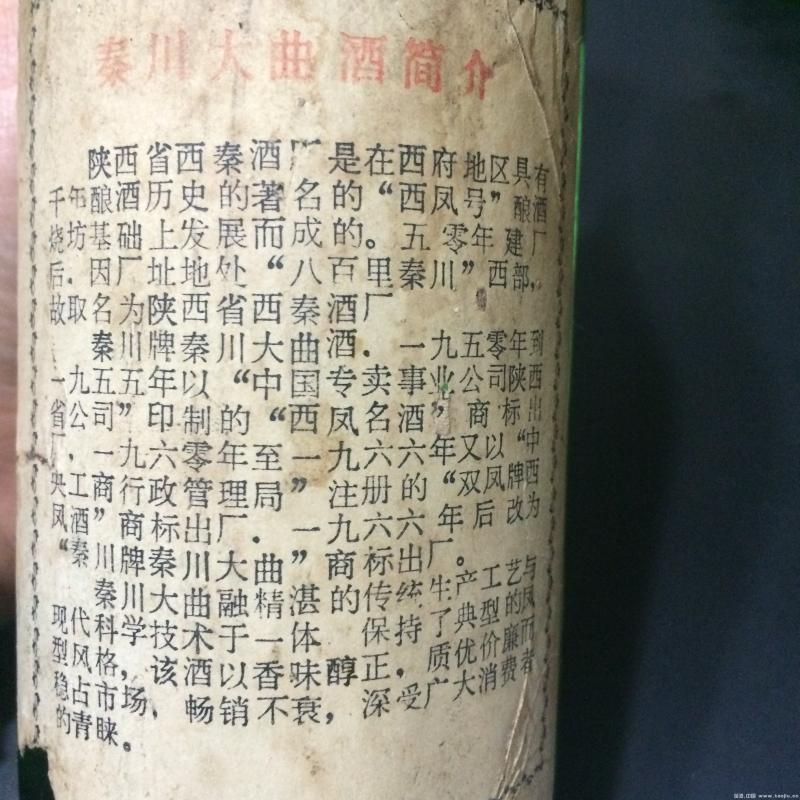 秦川大曲酒简介
陕西省西秦酒厂是在西府地区具有
千年酿酒历史的著名的“西凤号”酿酒
烧坊基础上发展而成的。五零年建厂,
后.因厂址地处“八百里秦川”西部,
故取名陕西省西秦酒厂.
秦川牌秦川大曲酒.一九五零年到
一九五五年以“中国专卖事业公司陕西
省公司”印制的“西凤名酒”商标出
厂.一九六零年至一九六六年又以“中
央工商行政管理局”注册的“双凤牌西
凤酒”商标出厂.一九六六年后改为
“秦川牌秦川大曲”商标出厂。
秦川大曲精湛的传统生产工艺与
现代科学技术融于一体,保持了典型的凤
型风格,该酒以香味醇正,质优价廉而
稳占市场,畅销不衰,深受广大消费者
的青睐。